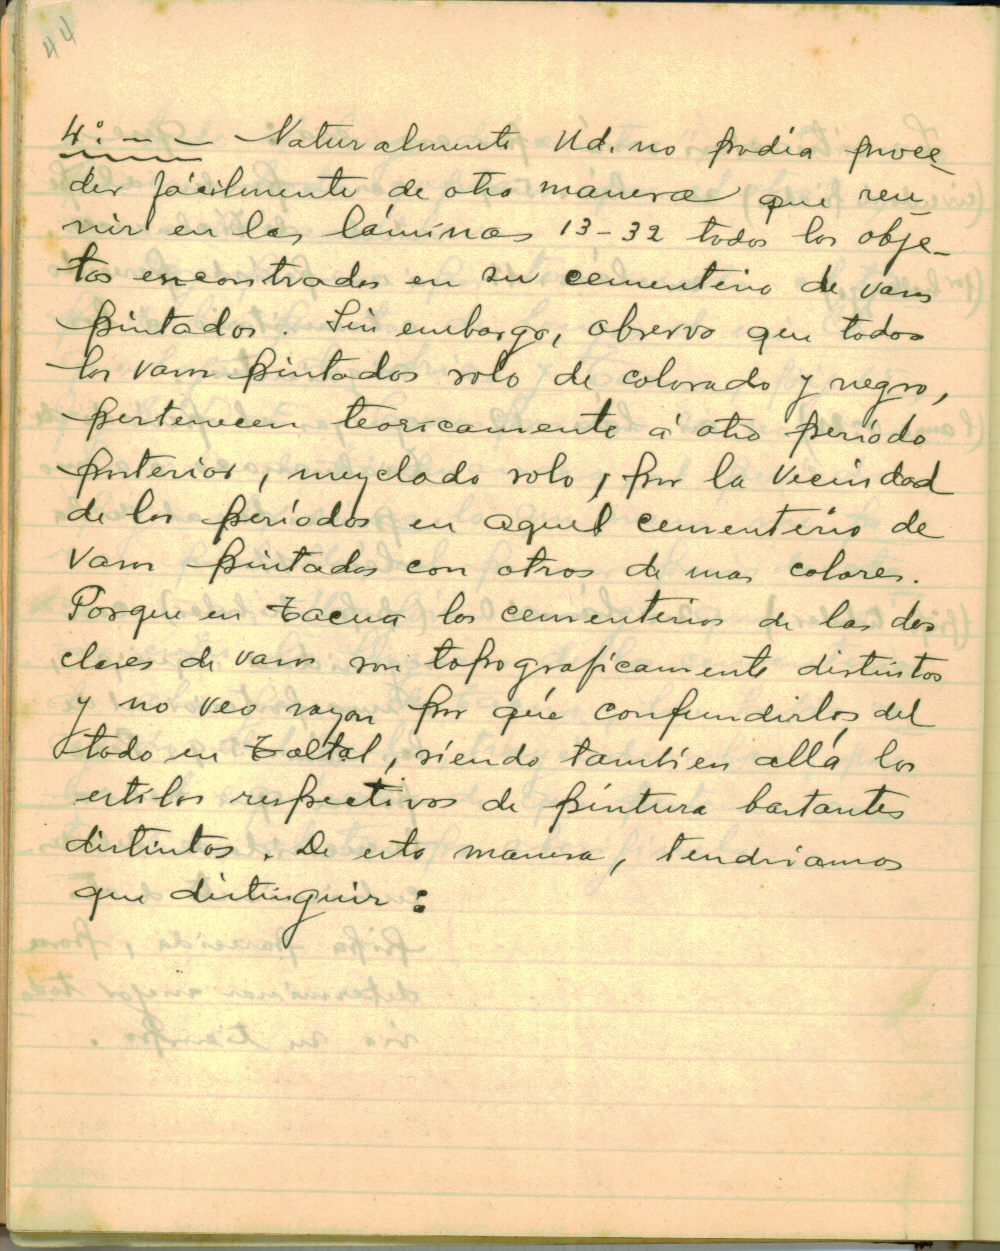 44
4º: – – – Naturalmente Ud. no podia proce-
der fácilmente de otra manera que reu-
nir en las láminas 13-32 todos los obje-
tos encontrados en su cementerio de vasos
pintados. Sin embargo, observo que todos
los vasos pintados solo de colorado y negro,
pertenecen teoricamente á otro período
posterior, mezclado solo, por la vecindad
de los períodos en aquel cementerio de
vasos pintados con otros de mas colores.
Porque en Tacna los cementerios de las dos
clases de vasos son topograficamente distintos
y no veo razon por qué confundirlos del
todo en Taltal, siendo tambien allá los
estilos respectivos de pintura bastantes
distintos. De esta manera, tendriamos
que distinguir: